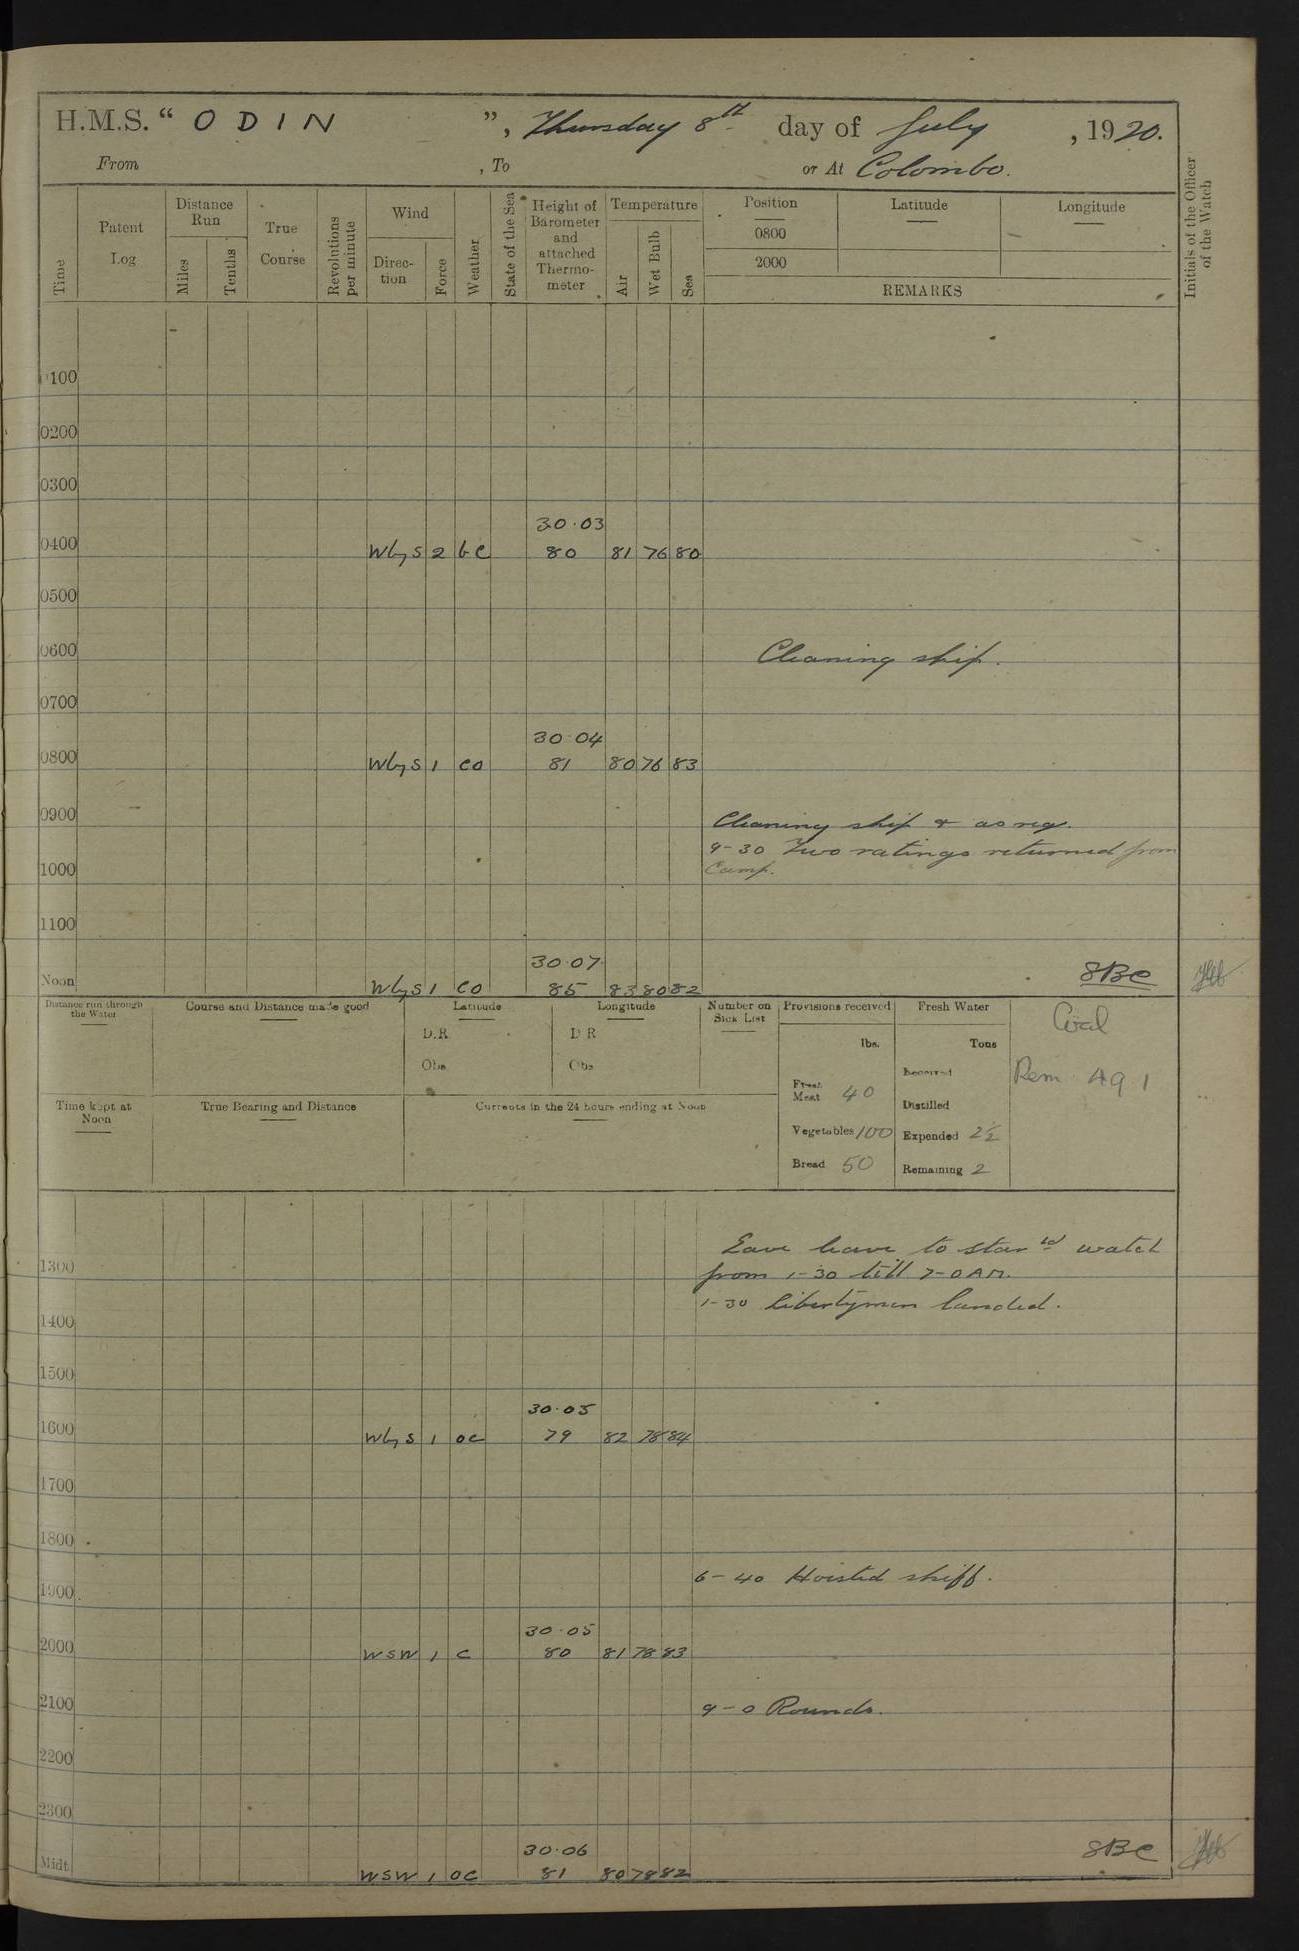 H.M.S. “ ODIN ”, Thursday 8th day of July, 1920.
From , To or At Colombo.
Time
Patent Log
Distance Run
Miles
Tenths
True Course
Revolutions per minute
Wind
Direction
Force
Weather
State of the Sea
Height of Barometer and attached Thermometer
Temperature
Air
Wet Bulb
Sea
Position
Latitude
Longitude
0800
2000
REMARKS
Initials of the Officer of the Watch
0100
0200
0300
30.03
0400 W by S 2 bc 80 81 76 80
0500
0600 Cleaning ship.
0700
30.04
0800 W by S 1 co 81 80 76 83
0900 Cleaning ship & as req.
9-30 Two ratings returned from
Camp.
1000
1100
30.07
Noon W by S 1 co 85 83 80 82 SBC
Distance run through the Water
Course and Distance made good
Latitude
D.R.
Obs.
Longitude
D R
Obs
Number on Sick List
Provisions received
lbs.
Fresh Meat 40
Vegetables 100
Bread 50
Fresh Water
Tons
Received
Distilled
Expended 2½
Remaining 2
Coal
Rem 491
Time kept at Noon
True Bearing and Distance
Currents in the 24 hours ending at Noon
Gave leave to starbd watch
1300 from 1-30 till 7-0 AM.
1-30 Libertymen landed.
1400
1500
30.05
1600 W by S 1 oc 79 82 78 84
1700
1800
6-40 Hoisted skiff.
1900
30.05
2000 WSW 1 c 80 81 78 83
2100 9-0 Rounds.
2200
2300
30.06
Midt. WSW 1 oc 81 80 78 82 SBC